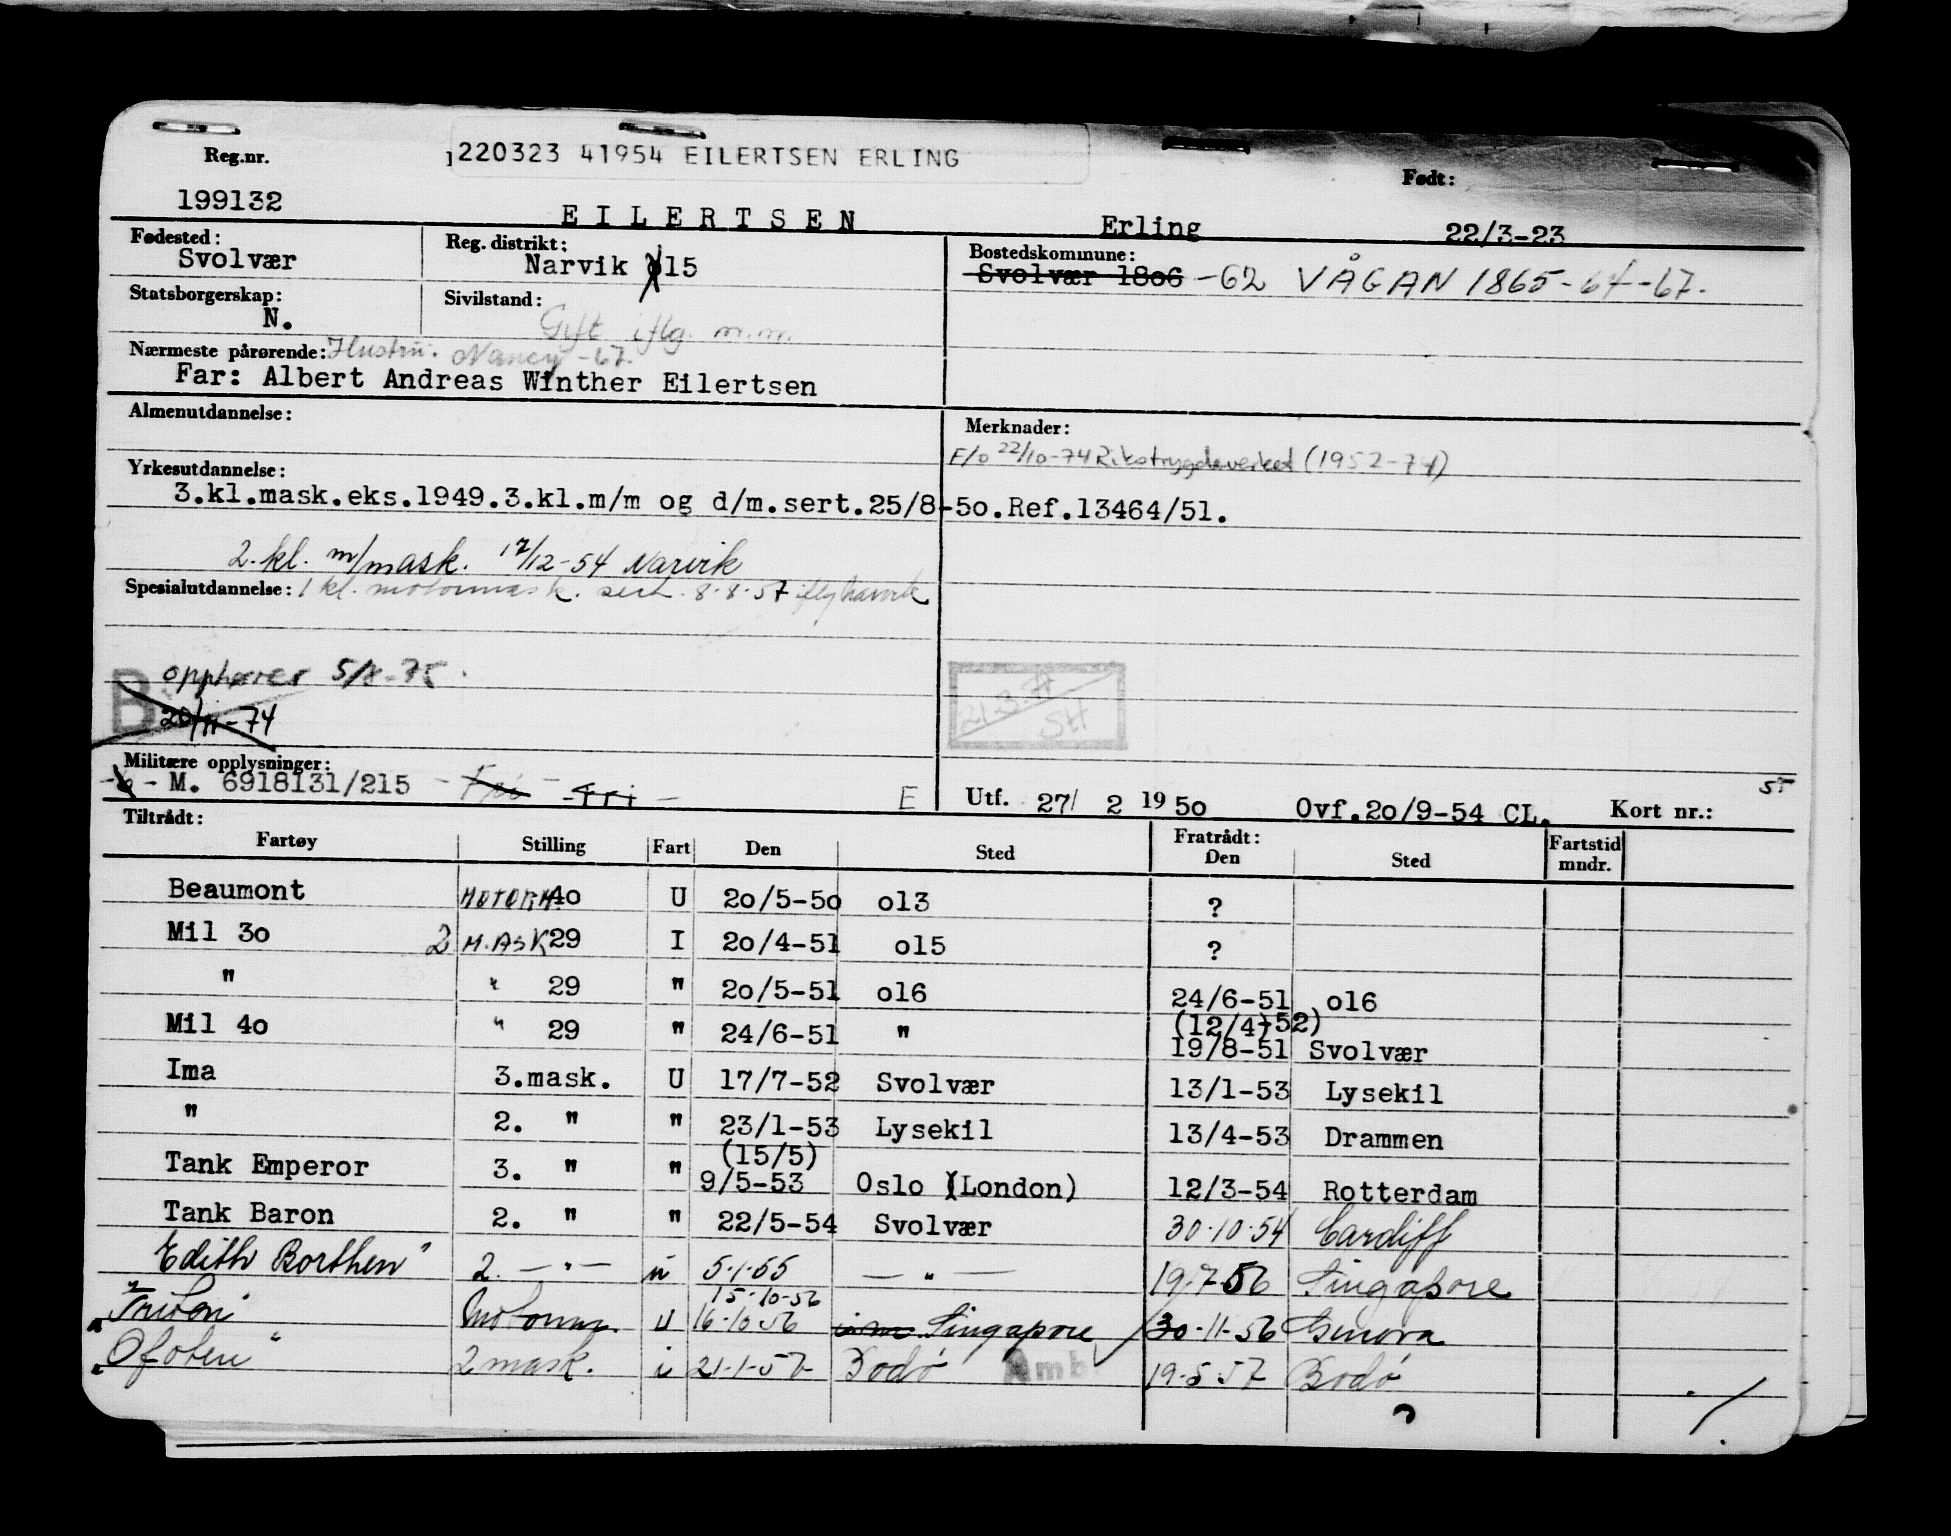 Reg.nr.
220323 41954 EILERTSEN ERLING
Født:
199132
EILERTSEN Erling 22/3-23
Fødested: Svolvær
Reg. distrikt: Narvik 15
Bostedskommune:
Svolvær 1806 -62 VÅGAN 1865-64-67.
Statsborgerskap: N.
Sivilstand: Gift iflg. m.m.
Nærmeste pårørende: Hustru. Nancy -67.
Far: Albert Andreas Winther Eilertsen
Almenutdannelse:
Merknader:
F/o 22/10-74 Rikstrygdeverket (1952-74)
Yrkesutdannelse:
3.kl.mask.eks.1949.3.kl.m/m og d/m.sert.25/8-5o.Ref.13464/51.
2.kl. m/mask. 17/12-54 Narvik
Spesialutdannelse: 1 kl. motormask. sert. 8.8.57 iflg Narvik
opphører 5/8-75.
B 20/11-74
21.3.
SH
Militære opplysninger:
- M. 6918131/215 - Fri - Fri -
E
Utf. 27/ 2 1950 Ovf.2o/9-54 CL. Kort nr.:
Tiltrådt: Fratrådt:
Fartøy Stilling Fart Den Sted Den Sted Fartstid mndr.
Beaumont MOTORM. 4o U 2o/5-5o o13 ?
Mil 3o 2 MASK 29 I 2o/4-51 o15 ?
" " 29 " 2o/5-51 o16 24/6-51 o16
Mil 4o " 29 " 24/6-51 " (12/4-52) 19/8-51 Svolvær
Ima 3.mask. U 17/7-52 Svolvær 13/1-53 Lysekil
" 2. " " 23/1-53 Lysekil 13/4-53 Drammen
Tank Emperor 3. " " (15/5) 9/5-53 Oslo (London) 12/3-54 Rotterdam
Tank Baron 2. " " 22/5-54 Svolvær 30.10.54 Cardiff
Edith Borthen" 2. —"— u 5.1.55 —"— 19.7.56 Singapore
"Triton" Motorm. u 15.10.56 16.10.56 Singapore 30.11.56 Genova
"Ofoten" 2 mask. i 21.1.57 Bodø Amb 19.5.57 Bodø